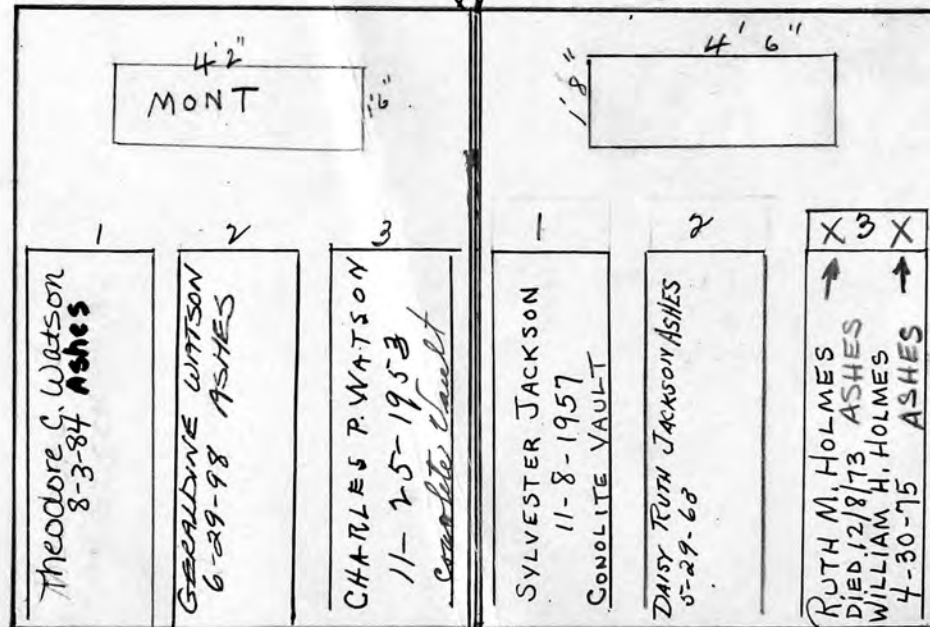 4'2"
MONT
1'6"
1
Theodore C. Watson
8-3-84 Ashes
2
GERALDINE WATSON
6-29-98 ASHES
3
CHARLES P. WATSON
11-25-1953
Vault
4' 6"
1'8"
1
SYLVESTER JACKSON
11-8-1957
CONOLITE VAULT
2
DAISY RUTH JACKSON ASHES
5-29-68
X 3 X
RUTH M. HOLMES
DIED, 12/8/73 ASHES
WILLIAM H. HOLMES
4-30-75 ASHES